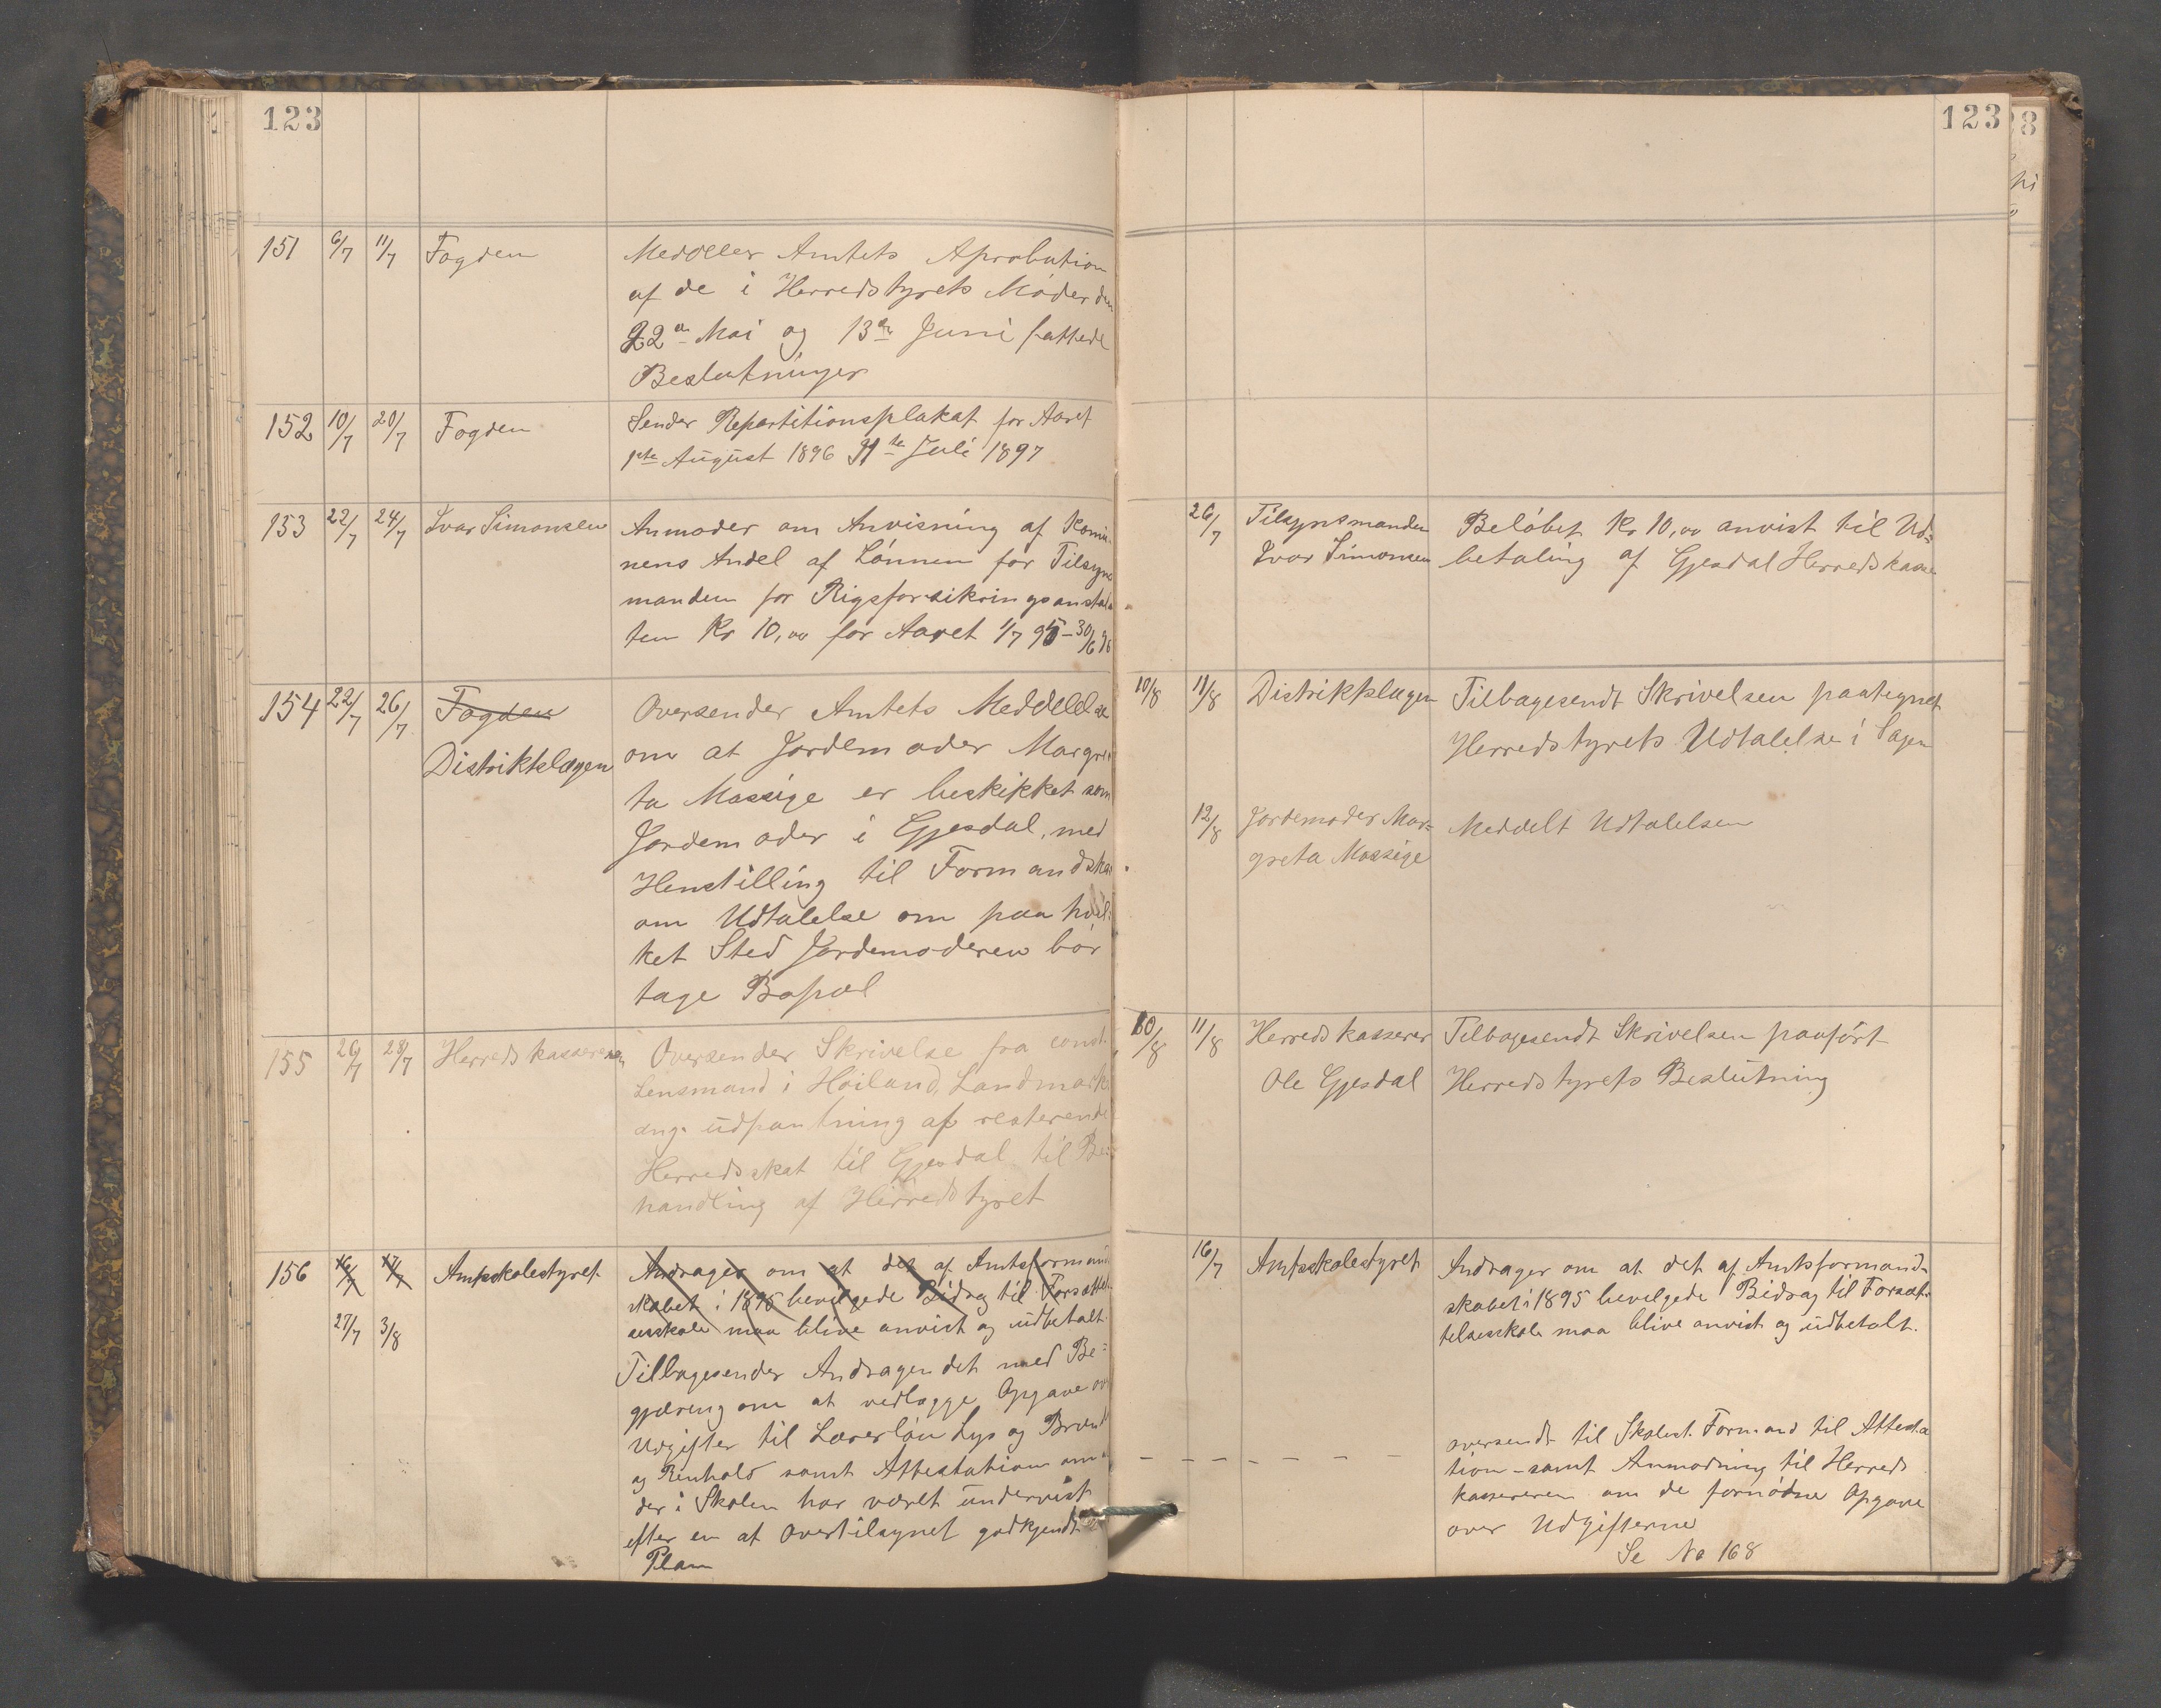 123
151 6/7 11/7 Fogden Meddeler Amtets Aprobation
af de i Herredstyrets Møder den
22de Mai og 13de Juni fattede
Beslutninger
152 10/7 20/7 Fogden Sender Repartitionsplakat for Aaret
1ste August 1896 31te Juli 1897
153 22/7 24/7 Ivar Simonsen Anmoder om Anvisning af Komu-
nens Andel af Lønnen for Tilsyns
manden for Rigsforsikringsanstal
ten Kr 10,00 for Aaret 1/7 95 - 30/6 96
154 22/7 26/7 Fogden Oversender Amtets Meddelelse
Distriktslægen om at Jordemoder Margre
ta Massige er beskikket som
Jordemoder i Gjesdal, med
Henstilling til Formandska
om Udtalelse om paa hvil-
ket Sted Jordemoderen bør
tage Bopæl
155 26/7 28/7 Herredskassereren Oversender Skrivelse fra const.
Lensmand i Høiland, Landmark
ang. udpantning af resterende
Herredsskat til Gjesdal til Be-
handling af Herredstyret
156 16/7 17/7 Amtsskolestyret Andrager om at det af Amtsformand
skabet i 1895 bevilgede Bidrag til Forsættel
sesskole maa blive anvist og udbetalt.
27/7 3/8
Tilbagesender Andragendet med Be-
gjæring om at vedlægge Opgave over
Udgifter til Lærerløn Lys og Brænde
og Renhold samt Attestation om
der i Skolen har været undervist
efter en af Overtilsynet godkjendt
Plan
123
26/7 Tilsynsmanden Beløbet Kr 10,00 anvist til Ud-
Ivar Simonsen betaling af Gjesdal Herredskasse
10/8 11/8 Distriktslægen Tilbagesendt Skrivelsen paategnet
Herredstyrets Udtalelse i Sagen
12/8 Jordemoder Mar- Meddelt Udtalelsen
greta Massige
10/8 11/8 Herredskasserer Tilbagesendt Skrivelsen paaført
Ole Gjesdal Herredstyrets Beslutning
16/7 Amtsskolestyret Andrager om at det af Amtsformand-
skabet i 1895 bevilgede Bidrag til Forsæt-
telsesskole maa blive anvist og udbetalt.
oversendt til Skolest. Formand til Attesta
tion - samt Anmodning til Herreds
kassereren om de fornødne Opgave
over Udgifterne
Se No 168